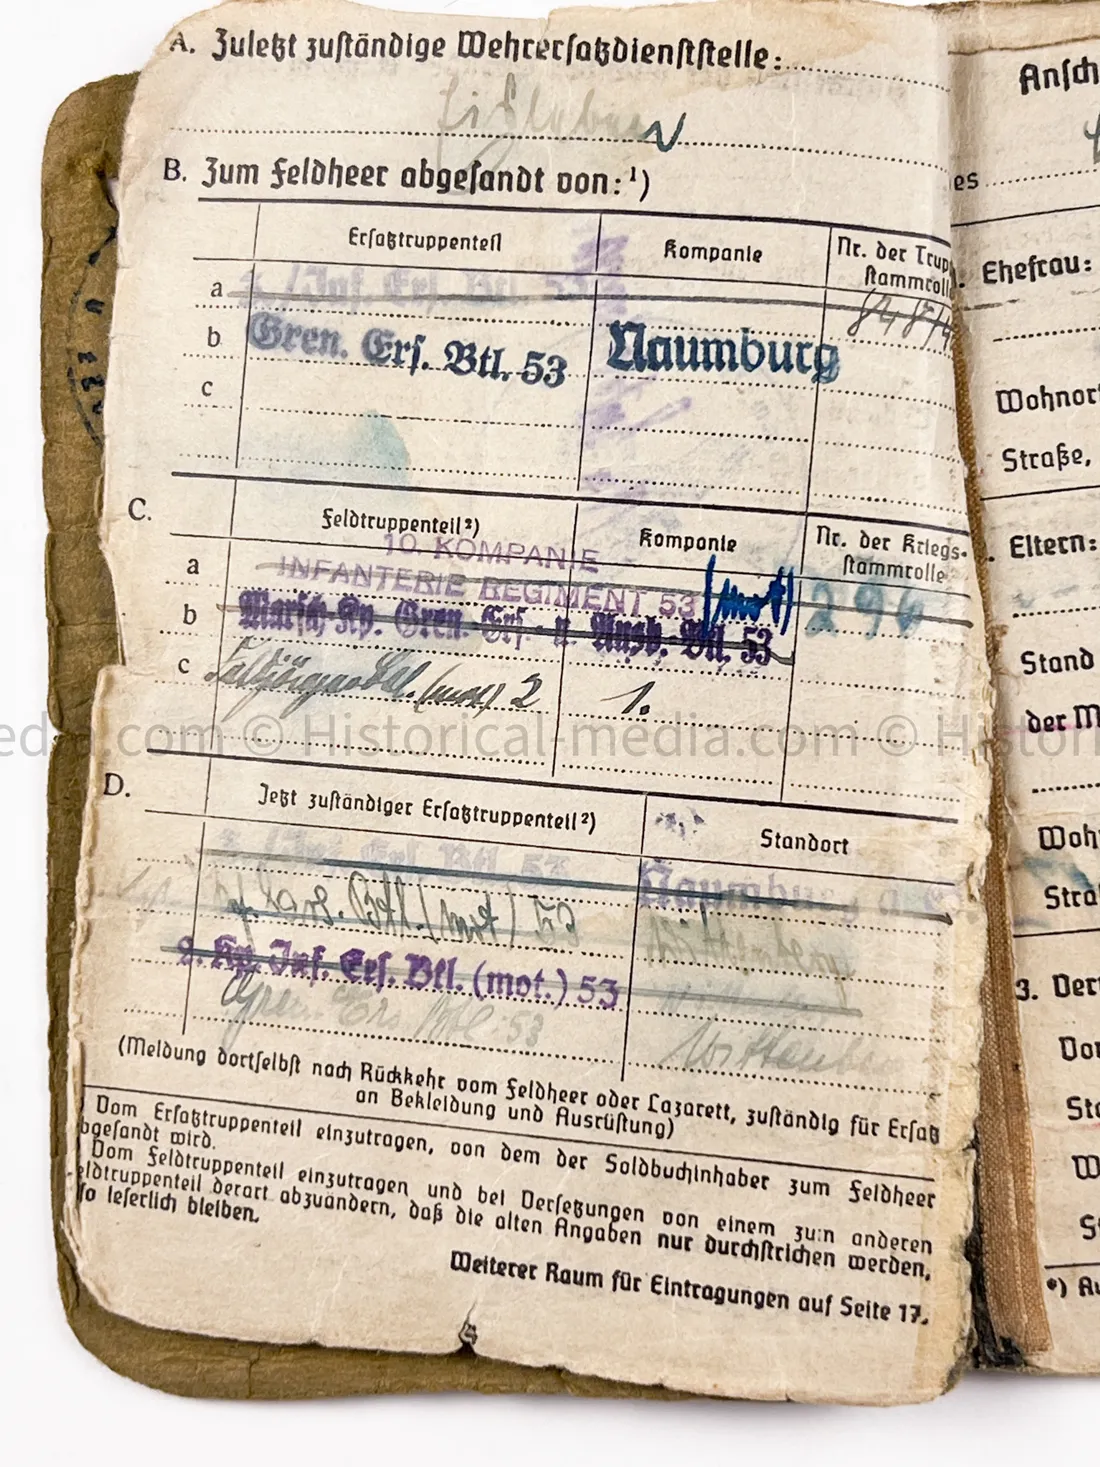 A. Zuletzt zuständige Wehrersatzdienststelle:
Eisleben
B. Zum Feldheer abgesandt von:¹)
Ersatztruppenteil Kompanie Nr. der Trup
stammroll
a ./Inf. Ers. Btl. 53
b Gren. Ers. Btl. 53 Naumburg
c
C. Feldtruppenteil²) Kompanie Nr. der Kriegs-
stammrolle
10. KOMPANIE
a INFANTERIE REGIMENT 53 (mot) 296
b Marsch-Kp. Gren.-Ers.- u. Ausb.-Btl. 53
c Feldjägerabtl. (mot) 2 1.
D. Jetzt zuständiger Ersatztruppenteil²) Standort
./Inf. Ers. Btl. 53 Naumburg a
Btl. (mot)
2. Kp. Inf. Ers. Btl. (mot.) 53
Gren. Ers. Btl. 53
(Meldung dortselbst nach Rückkehr vom Feldheer oder Lazarett, zuständig für Ersatz
an Bekleidung und Ausrüstung)
Vom Ersatztruppenteil einzutragen, von dem der Soldbuchinhaber zum Feldheer
bgesandt wird.
Vom Feldtruppenteil einzutragen und bei Versetzungen von einem zum anderen
eldtruppenteil derart abzuändern, daß die alten Angaben nur durchstrichen werden,
so leserlich bleiben.
Weiterer Raum für Eintragungen auf Seite 17.
4
Ansch
es
Ehefrau:
Wohnort
Straße,
Eltern:
Stand
der M
Woh
Stra
3. Ver
Vor
Sta
W
St
*) Au
Historical-media.com © Historical-media.com © Histor